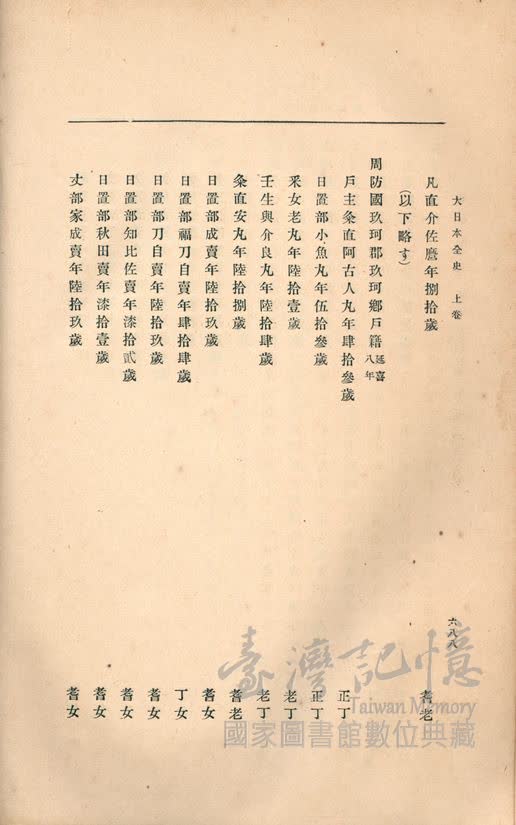 大日本全史 上卷
六八八
凡直介佐麿年捌拾歲 耆老
(以下略す)
周防國玖珂郡玖珂鄉戶籍 延喜八年
戶主粂直阿古人丸年肆拾參歲 正丁
日置部小魚丸年伍拾參歲 正丁
釆女老丸年陸拾壹歲 老丁
壬生與介良丸年陸拾肆歲 老丁
粂直安丸年陸拾捌歲 耆老
日置部成賣年陸拾玖歲 耆女
日置部福刀自賣年肆拾肆歲 丁女
日置部刀自賣年陸拾玖歲 耆女
日置部知比佐賣年漆拾貳歲 耆女
日置部秋田賣年漆拾壹歲 耆女
丈部家成賣年陸拾玖歲 耆女
臺灣記憶
Taiwan Memory
國家圖書館數位典藏